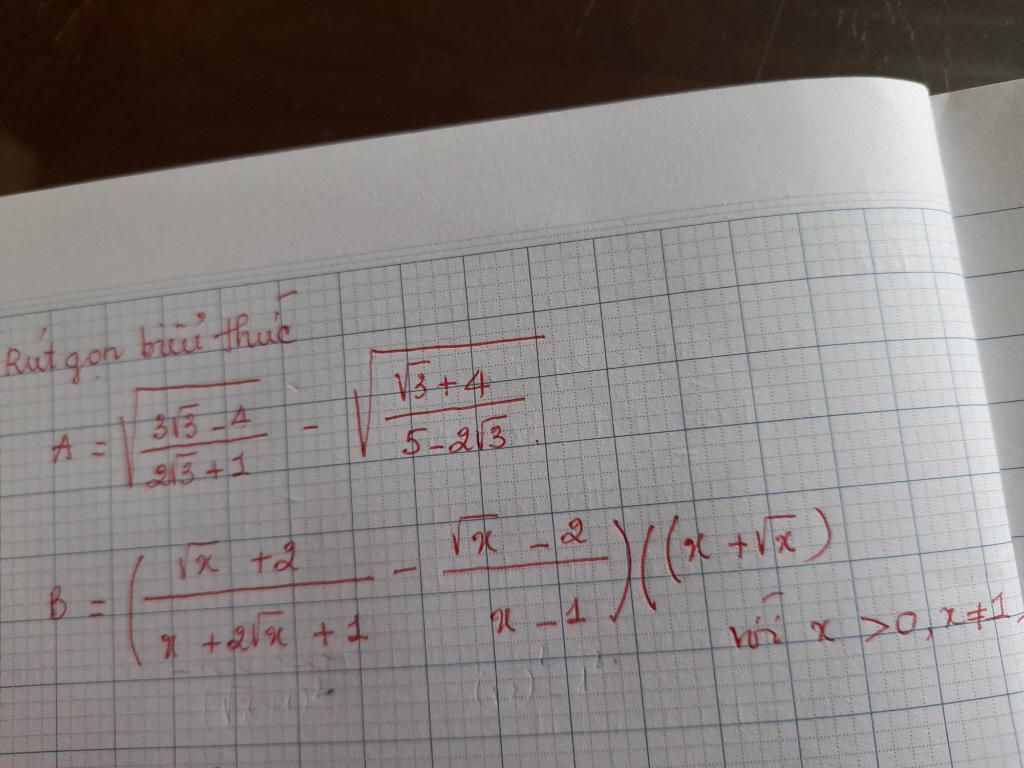 Rút gọn biểu thức
A = √((3√3 - 4)/(2√3 + 1)) - √((√3 + 4)/(5 - 2√3))
B = ((√x + 2)/(x + 2√x + 1) - (√x - 2)/(x - 1))((x + √x)
với x > 0, x ≠ 1,